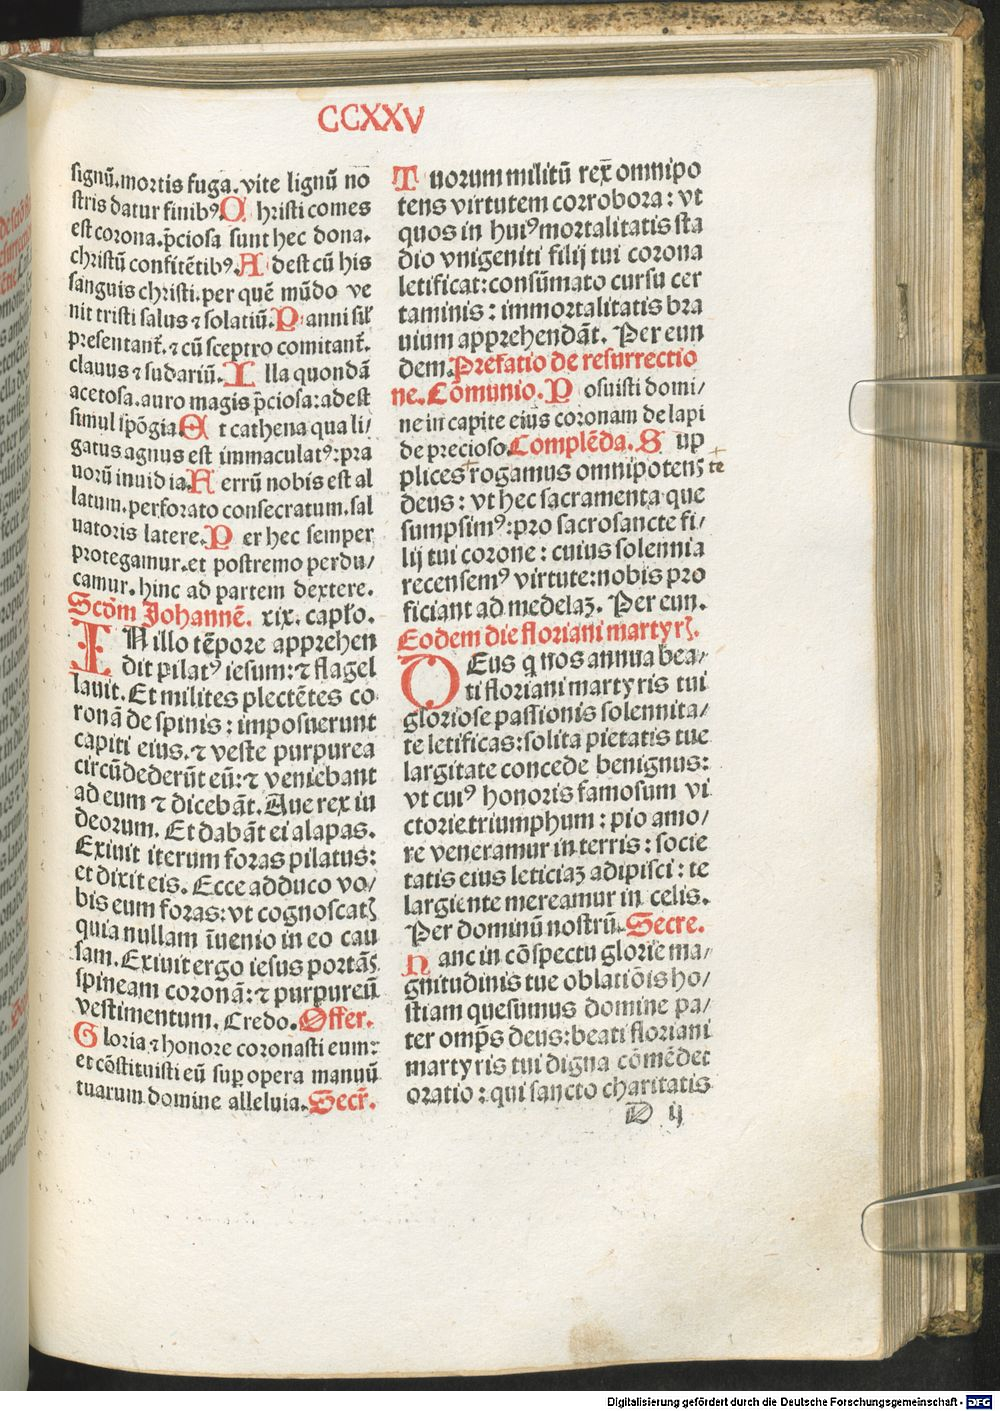 CCXXV
signū.mortis fuga.vite lignū no
stris datur finibꝰ C hristi comes
est corona.p̄ciosa sunt hec dona.
christū confitētibꝰ. A dest cū his
sanguis christi.per quē mūdo ve
nit tristi salus ⁊ solatiū. P anni sil̄
presentant̄.⁊ cū sceptro comitant̄.
clauus ⁊ sudariū. I lla quondā
acetosa.auro magis p̄ciosa:adest
simul spōgia E t cathena qua li/
gatus agnus est immaculatꝰ:pra
uorū inuidia. F errū nobis est al
latum.perforato consecratum.sal
uatoris latere. P er hec semper
protegamur.et postremo perdu/
camur.hinc ad partem dextere.
Scdm̄ Johannē. xix. capło.
IN illo tēpore apprehen
dit pilatꝰ iesum:⁊ flagel
lauit. Et milites plectētes co
ronā de spinis : imposuerunt
capiti eius.⁊ veste purpurea
circūdederūt eū:⁊ veniebant
ad eum ⁊ dicebāt. Aue rex iu
deorum. Et dabāt ei alapas.
Exiuit iterum foras pilatus:
et dixit eis. Ecce adduco vo/
bis eum foras:vt cognoscatꝭ
quia nullam īuenio in eo cau
sam. Exiuit ergo iesus portās
spineam coronā:⁊ purpureū
vestimentum. Credo. Offer.
G loria ⁊ honore coronasti eum:
et cōstituisti eū sup̱ opera manuū
tuarum domine alleluia. Secr̄.
T uorum militū rex̄ omnipo
tens virtutem corrobora : vt
quos in huiꝰ mortalitatis sta
dio vnigeniti filij tui corona
letificat:consūmato cursu cer
taminis : immortalitatis bra
uium apprehendāt. Per eun
dem. Prefatio de resurrectio
ne. Cōmunio. P osuisti domi/
ne in capite eius coronam de lapi
de precioso. Complēda. S up
plices rogamus omnipotens te
deus : vt hec sacramenta que
sumpsimꝰ:pro sacrosancte fi/
lij tui corone : cuius solennia
recensemꝰ virtute:nobis pro
ficiant ad medelaꝫ. Per eun.
Eodem die floriani martyrꝭ.
DEus q nos annua bea/
ti floriani martyris tui
gloriose passionis solennita/
te letificas:solita pietatis tue
largitate concede benignus:
vt cuiꝰ honoris famosum vi
ctorie triumphum : pio amo/
re veneramur in terris : socie
tatis eius leticiaꝫ adipisci : te
largiente mereamur in celis.
Per dominū nostrū. Secre.
H anc in cōspectu glorie ma/
gnitudinis tue oblatiōis ho/
stiam quesumus domine pa/
ter omp̄s deus:beati floriani
martyris tui digna cōmēdet
oratio : qui sancto charitatis
D ij
Digitalisierung gefördert durch die Deutsche Forschungsgemeinschaft - DFG